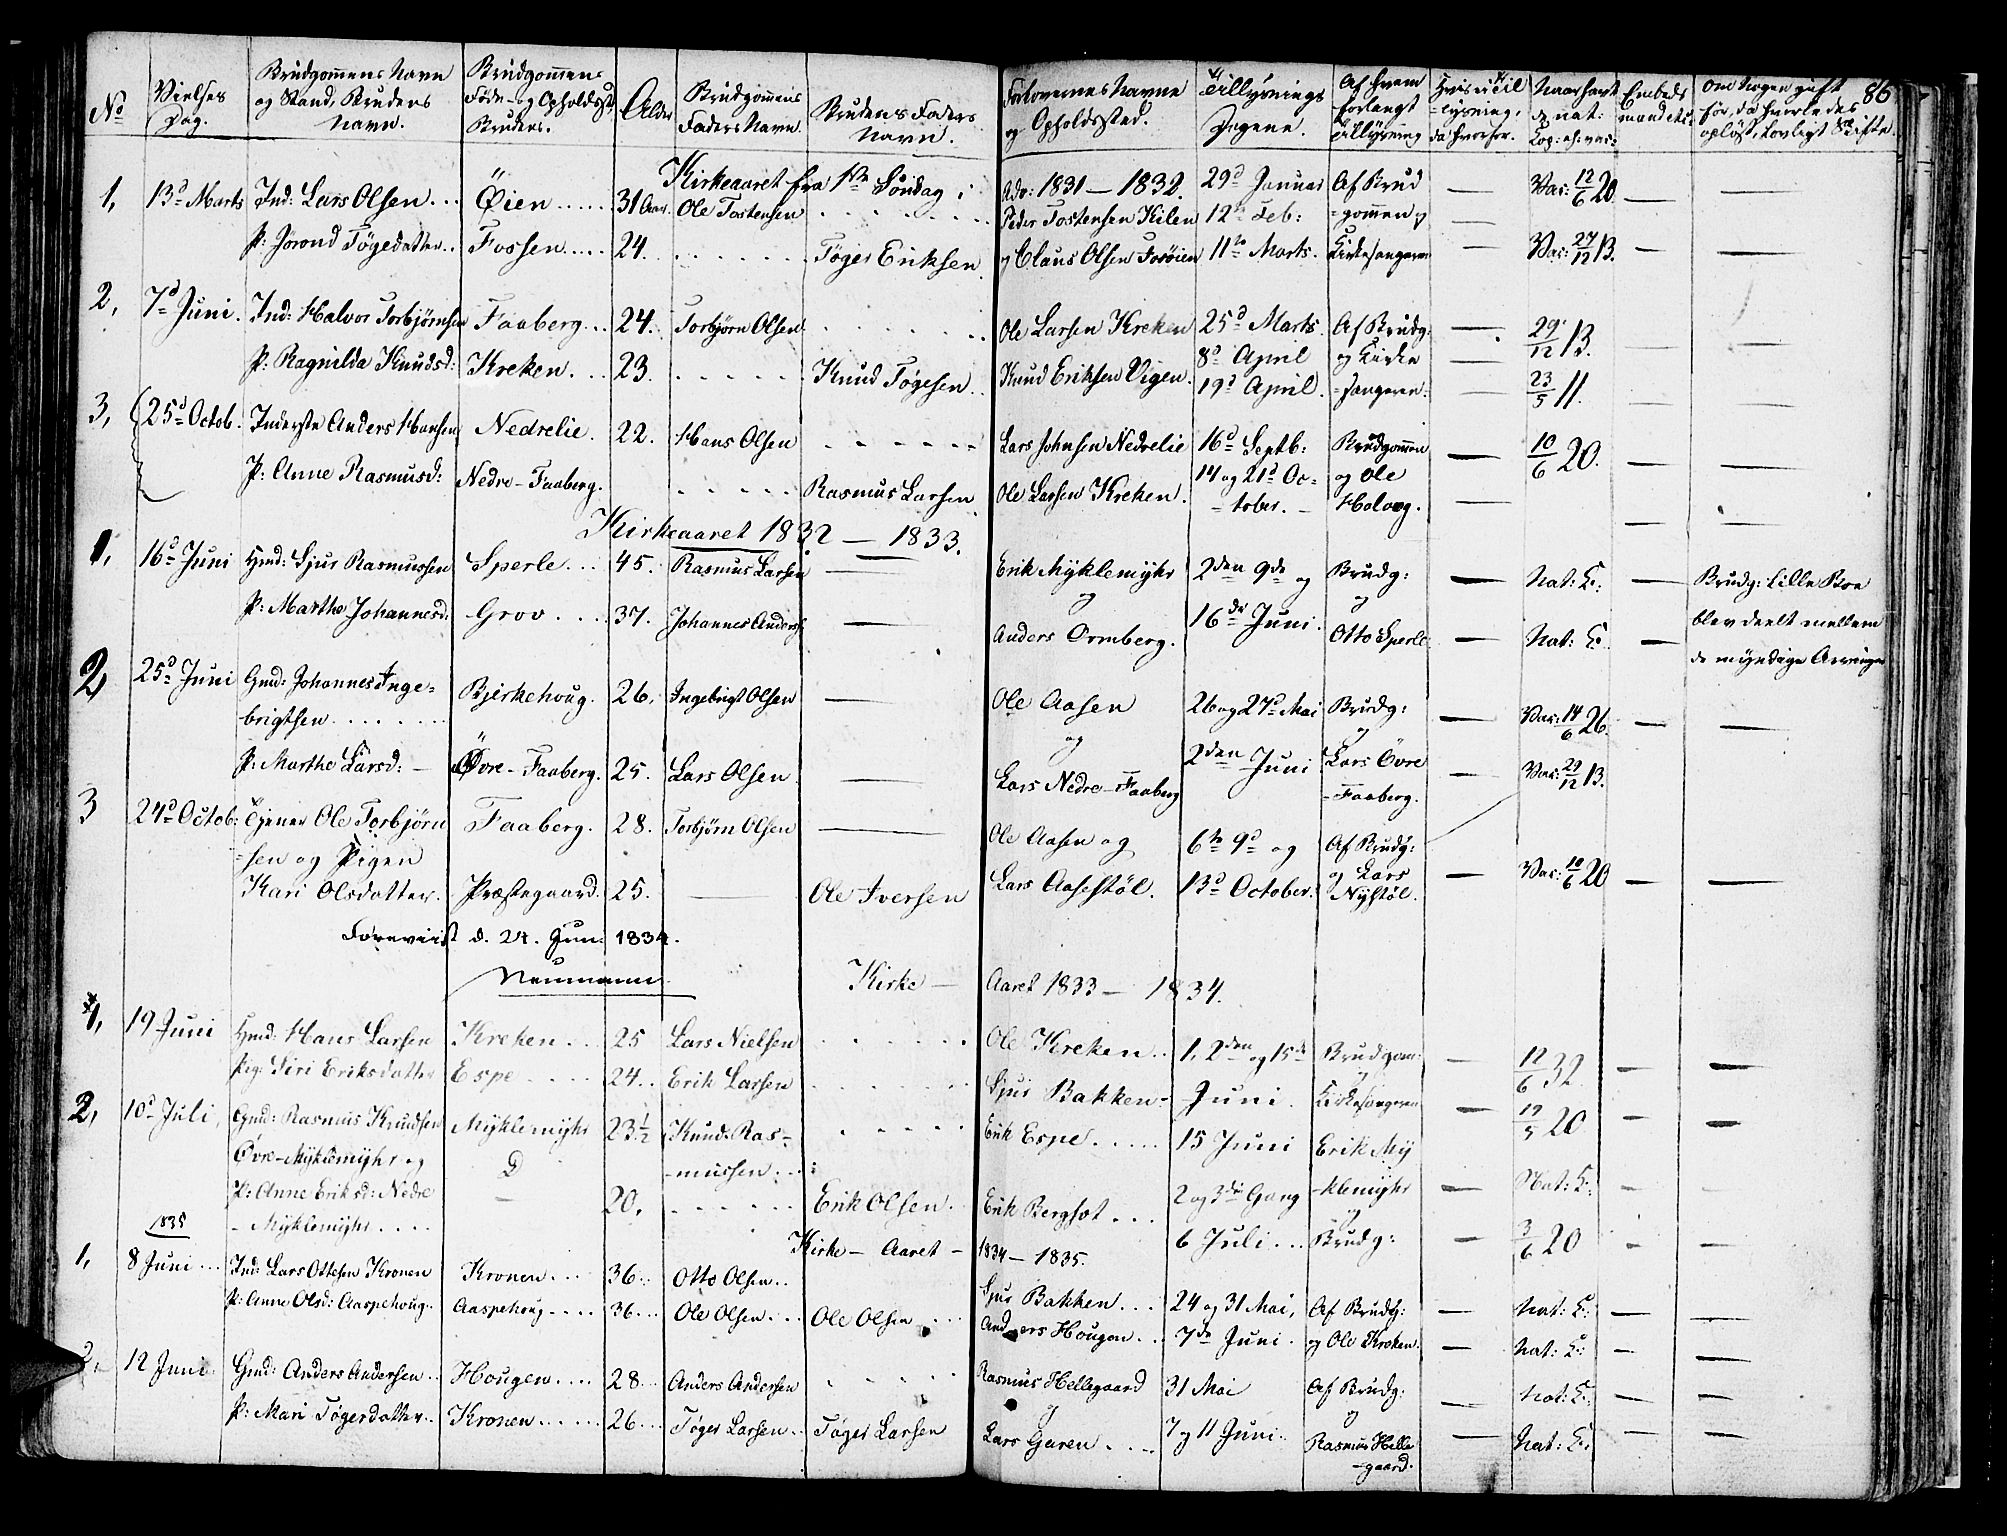 86
No | Vielses Dag. | Brudgommens Navn og Stand, Brudens Navn. | Brudgommens Føde- og Opholdsst. Brudens. | Alder | Brudgommens Faders Navn. | Brudens Faders Navn. | Forlovernes Navne og Opholdssted. | Tillysnings Dagene. | Af hvem forlangt Tillysning | Hvis ei Til=lysning, da hvorfor. | Naar havt de nat: Kop: el: vac: | Embeds mand etc. | Om Nogen gift før, da hvorledes opløst, Lovligt Skifte
Kirkeaaret fra 1ste Søndag i Adv: 1831 — 1832.
1, 13d Marts Ind: Lars Olsen . . . Øien . . . . . 31 Aar. Ole Tostensen . . . . . Peder Tostensen Kilen 29d Januar 12te Feb: Af Brud=gommen og — Vac: 12/6 20. —
P: Jorond Tøgedatter . . Fossen . . . . . 24. . . . . . . Tøger Eriksen og Claus Olsen Forøien 11te Marts. Kirkesangeren — Vac: 27/12 13. — —
2, 7d Juni. Ind: Halvor Torbjørnsen Faaberg . . . 24. Torbjørn Olsen . . . . . Ole Larsen Kreken 25d Marts. Af Brudg: — 29/12 13. — —
P: Ragnilda Knudsd: Kreken . . . 23. . . . . . Knud Tøgesen . . Knud Eriksen Vigen. 8d April 19d April. og Kirke=sangeren: — 23/5 11. — —
3, 25d Octob. Inderste Anders Hansen Nedrelie. 22. Hans Olsen - - - - - Lars Johnsen Nedrelie 16d Septb: Brudgommen — 10/6 20. — —
P: Anne Rasmusd: Nedre-Faaberg. . . . . . Rasmus Larsen Ole Larsen Kreken. 14 og 21d Oc=tober. — og Ole Halvog. — — —
Kirkeaaret 1832 — 1833.
1, 16d Juni Hmd: Sjur Rasmussen Sperle . . . 45. Rasmus Larsen — Erik Myklemyhr og 2den 9de og Brudg: og — Nat: K: — Brudg: Lille Boe
P: Marthe Johannesd: Grov . . . . 37. Johannes Anders. — Anders Ormberg. 16de Juni. Otto Sperle — Nat: K: — blev deelt mellem de myndige Arvinger
2, 25d Juni Gmd: Johannes Inge=brigtsen . . . . . . Bjerkehoug. 26. Ingebrigt Olsen — Ole Aasen og 26 og 27d Mai Brudg: og — Vac: 14/6 26. — —
P: Marthe Larsd: — Øvre-Faaberg. 25. Lars Olsen. — Lars Nedre-Faaberg 2den Juni Lars Øvre-Faaberg. — Vac: 29/12 13.
3 24d Octob: Tjener Ole Torbjørn=sen og Pigen Faaberg. 28. Torbjørn Olsen — Ole Aasen og 6te 9d og Af Brudg:
Kari Olsdatter. Præstegaard. 25. — Ole Iversen Lars Aasestøl. 13d October. og Lars Nystøl. — Vac: 10/6 20 — —
Foreviist d. 24. Jun: 1834.
Neumann.
Kirke — Aaret 1833 — 1834.
1, 19 Juni Hmd: Hans Larsen Kreken . . . 25 Lars Nielsen . . . . . Ole Kreken . . 1, 2den og 15de Brudgom: og — 12/6 32 — —
Pig: Siri Eriksdatter Espe . . . . 24 . . Erik Larsen . . . . . Sjur Bakken. Juni. Kirkesangeren — 19/5 20 — —
2, 10d Juli, Gmd: Rasmus Knudsen Myklemyhr 23½ Knud Ras= . . . . . Erik Espe . . . . . 15 Juni Erik My
Øvre-Myklemyhr og D -mussen . . .
P: Anne Eriksd: Nedre — 20, . . . . . . Erik Olsen. Erik Bergset . . . 2 og 3die Gang -klemyhr og — Nat: K: — —
-Myklemyhr . . . . 6 Juli . . . Brudg: — 3/6 20 — —
1835
Kirke — Aaret — 1834 — 1835.
1, 8 Juni . . . Ind: Lars Ottesen Kronen Kronen . . . 36 . . Otto Olsen . . Sjur Bakken . . . 24 og 31 Mai, Af Brudg: — Nat: K: — —
P: Anne Olsd: Aaspehoug . . Aaspehoug . . . . 36 . . . Ole Olsen . . . Ole Olsen . . . Anders Hougen . . 7de Juni. og Ole Kroken. — Nat: K: — —
2, 12 Juni Gmd: Anders Andersen . . Hougen . . . . 28 . . . Anders Andersen . . . . . Rasmus Hellegaard og 31 Mai Af Brudg: og — Nat: K: — —
P: Mari Tøgerdatter . . Kronen . . . . . 26 . . . Tøger Larsen . . Tøger Larsen Lars Garen . . . . 7 og 11 Juni. Rasmus Helle-gaard. — Nat: K: — —